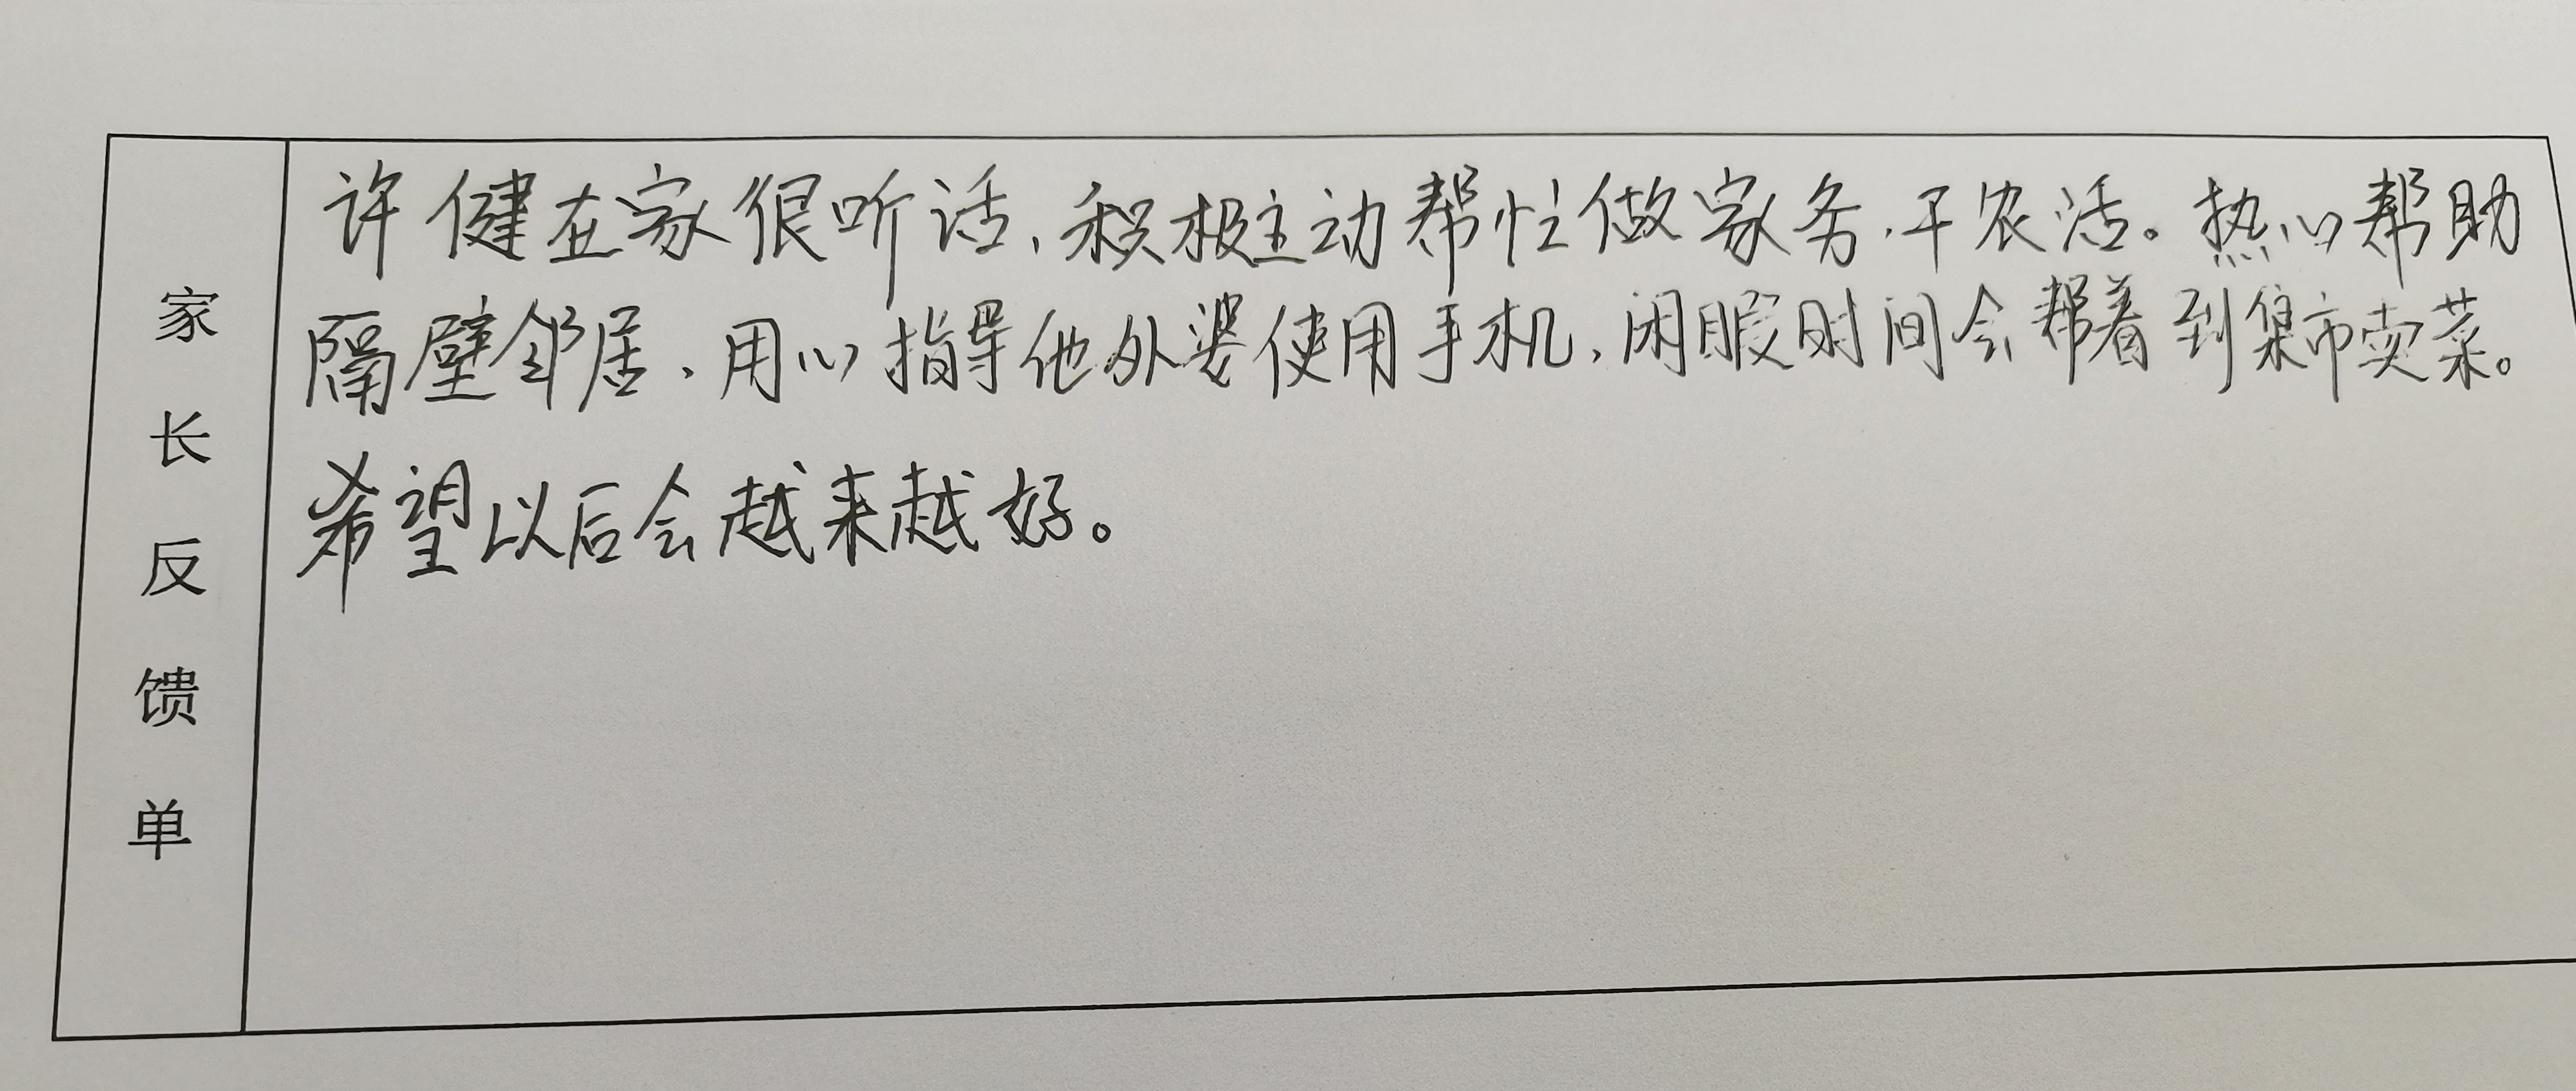 家长反馈单
许健在家很听话，积极主动帮忙做家务，干农活。热心帮助
隔壁邻居，用心指导他外婆使用手机，闲暇时间会帮着到集市卖菜。
希望以后会越来越好。